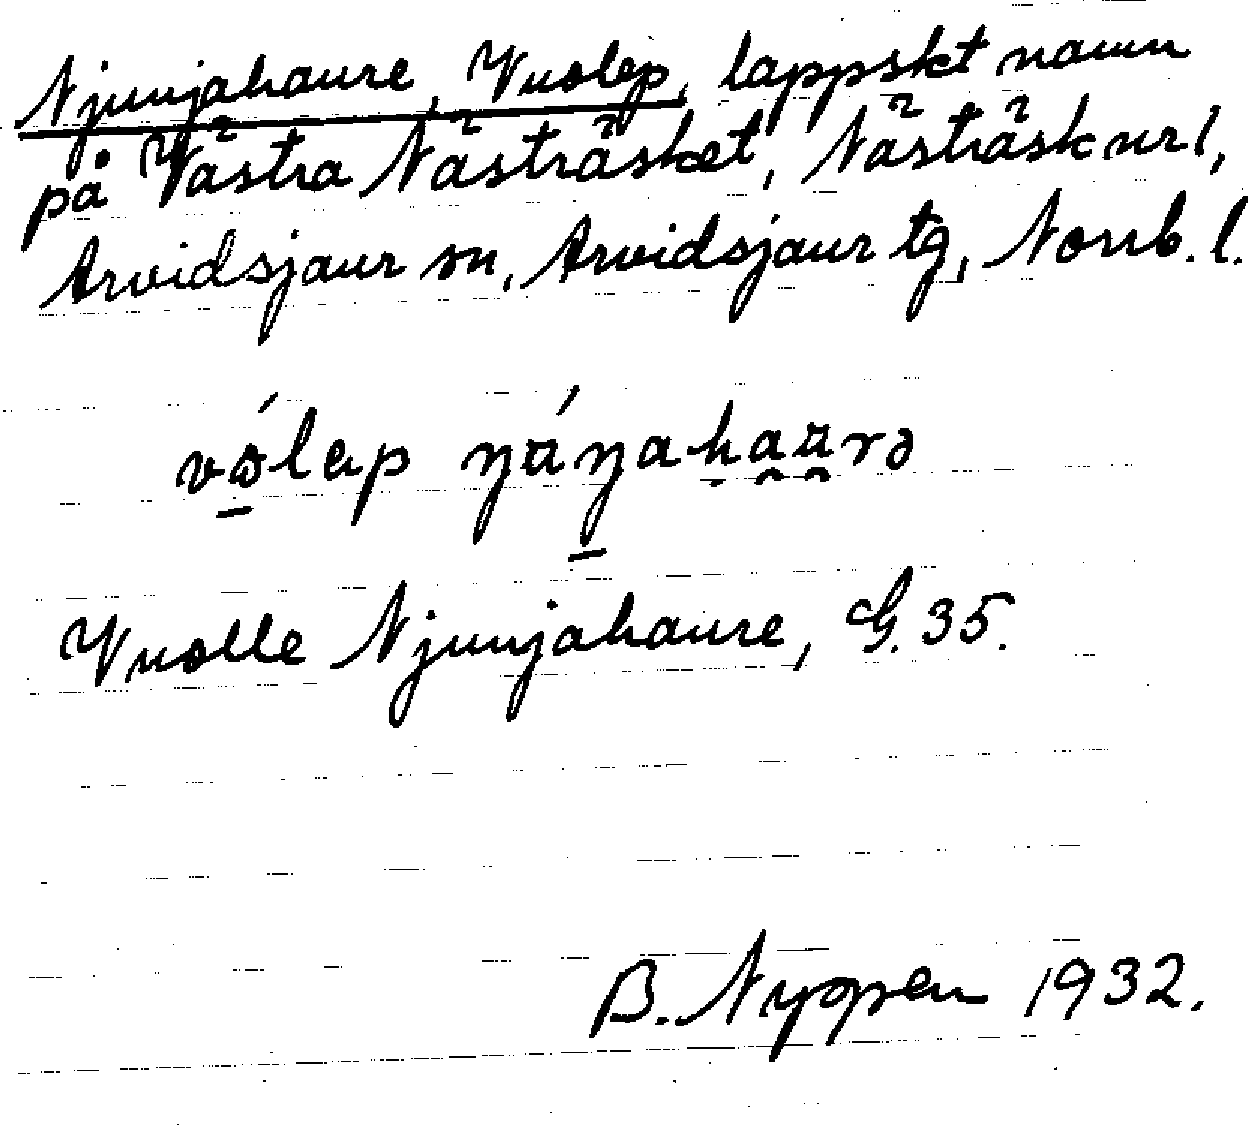 Njunjahaure, Vuolep, lappskt namn
på Västra Nästräsket, Nästräsk nr 1,
Arvidsjaur sn, Arvidsjaur tg, Norrb. l.
Vuolle Njunjahaure, G. 35.
B. Nygren 1932.